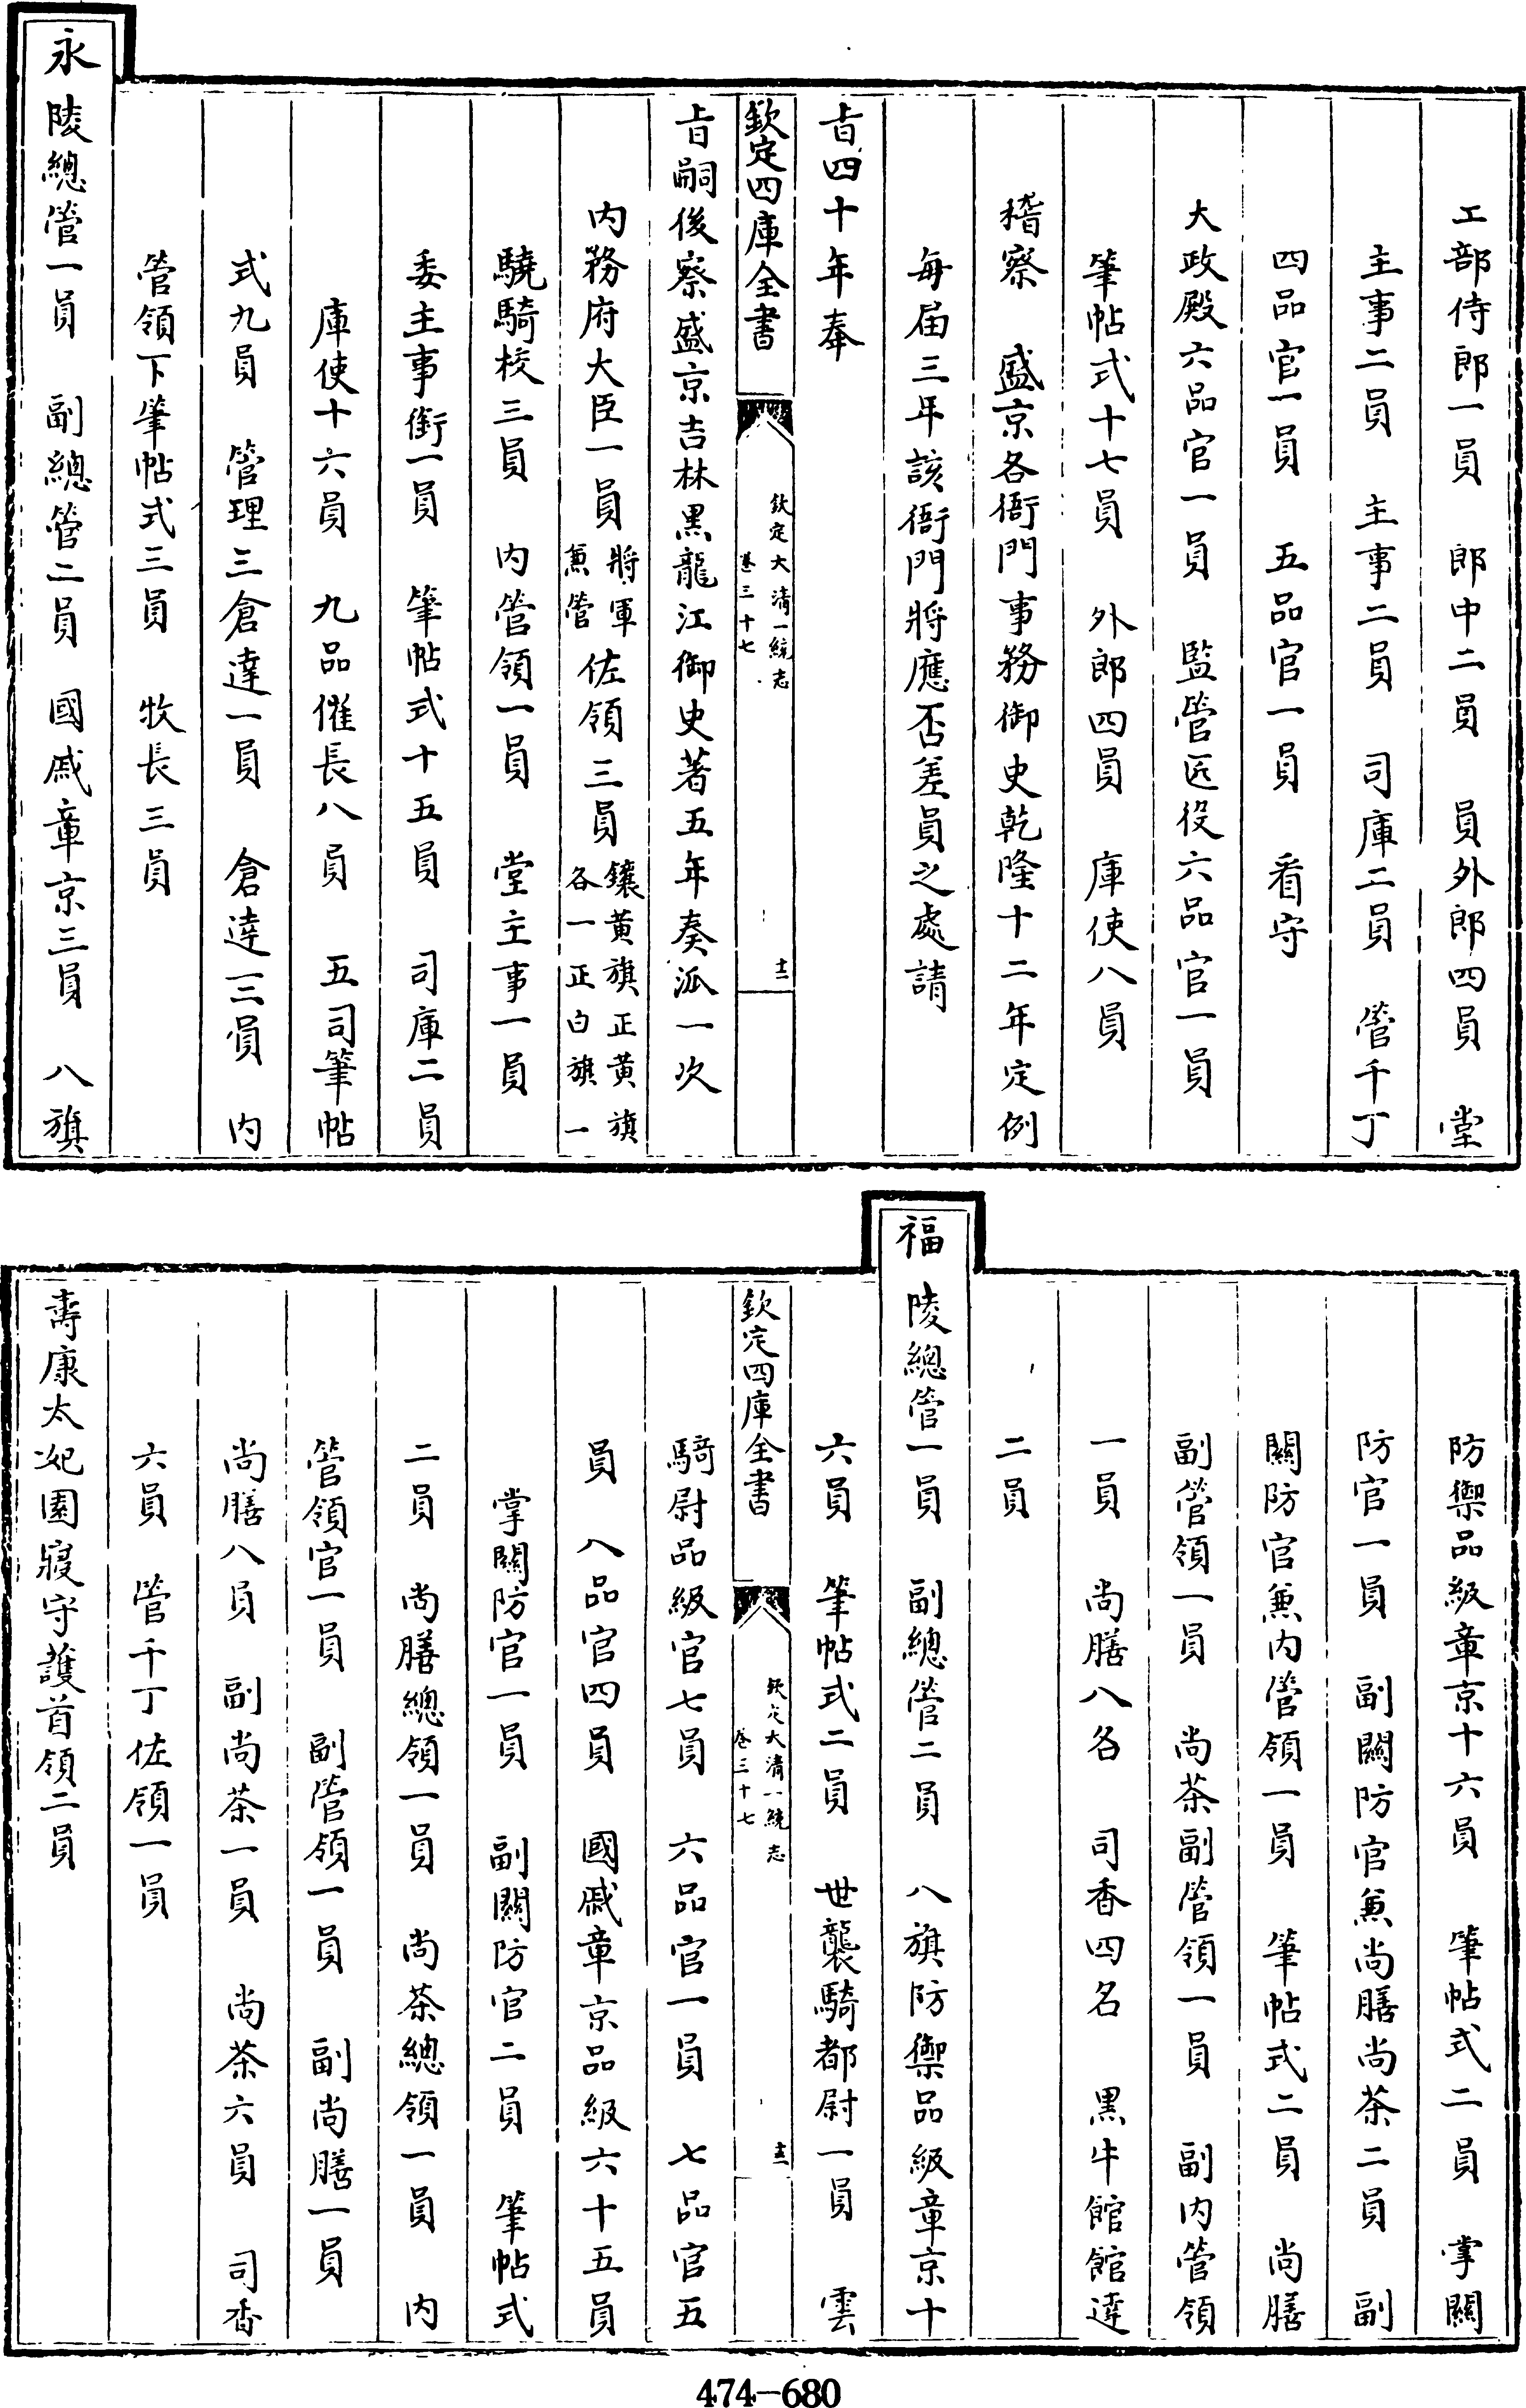 工部侍郎一員　郎中二員　員外郎四員　堂
主事二員　主事二員　司庫二員　管千丁
四品官一員　五品官一員　看守
大政殿六品官一員　監管匠役六品官一員
筆帖式十七員　外郎四員　庫使八員
稽察　盛京各衙門事務御史乾隆十二年定例
每届三年該衙門將應否差員之處請
旨四十年奉
欽定四庫全書
欽定大清一統志
卷三十七
十二
旨嗣後察盛京吉林黑龍江御史著五年奏派一次
内務府大臣一員將軍兼管佐領三員鑲黄旗正黄旗各一正白旗一
驍騎校三員　内管領一員　堂主事一員
委主事銜一員　筆帖式十五員　司庫二員
庫使十六員　九品催長八員　五司筆帖
式九員　管理三倉達一員　倉達三員　内
管領下筆帖式三員　牧長三員
永陵總管一員　副總管二員　國戚章京三員　八旗
防禦品級章京十六員　筆帖式二員　掌關
防官一員　副關防官兼尚膳尚茶二員　副
關防官兼内管領一員　筆帖式二員　尚膳
副管領一員　尚茶副管領一員　副内管領
一員　尚膳八名　司香四名　黑牛館館達
二員
福陵總管一員　副總管二員　八旗防禦品級章京十
六員　筆帖式二員　世襲騎都尉一員　雲
欽定四庫全書
欽定大清一統志
卷三十七
十三
騎尉品級官七員　六品官一員　七品官五
員　八品官四員　國戚章京品級六十五員
掌關防官一員　副關防官二員　筆帖式
二員　尚膳總領一員　尚茶總領一員　内
管領官一員　副管領一員　副尚膳一員
尚膳八員　副尚茶一員　尚茶六員　司香
六員　管千丁佐領一員
壽康太妃園寢守護首領二員
474-680